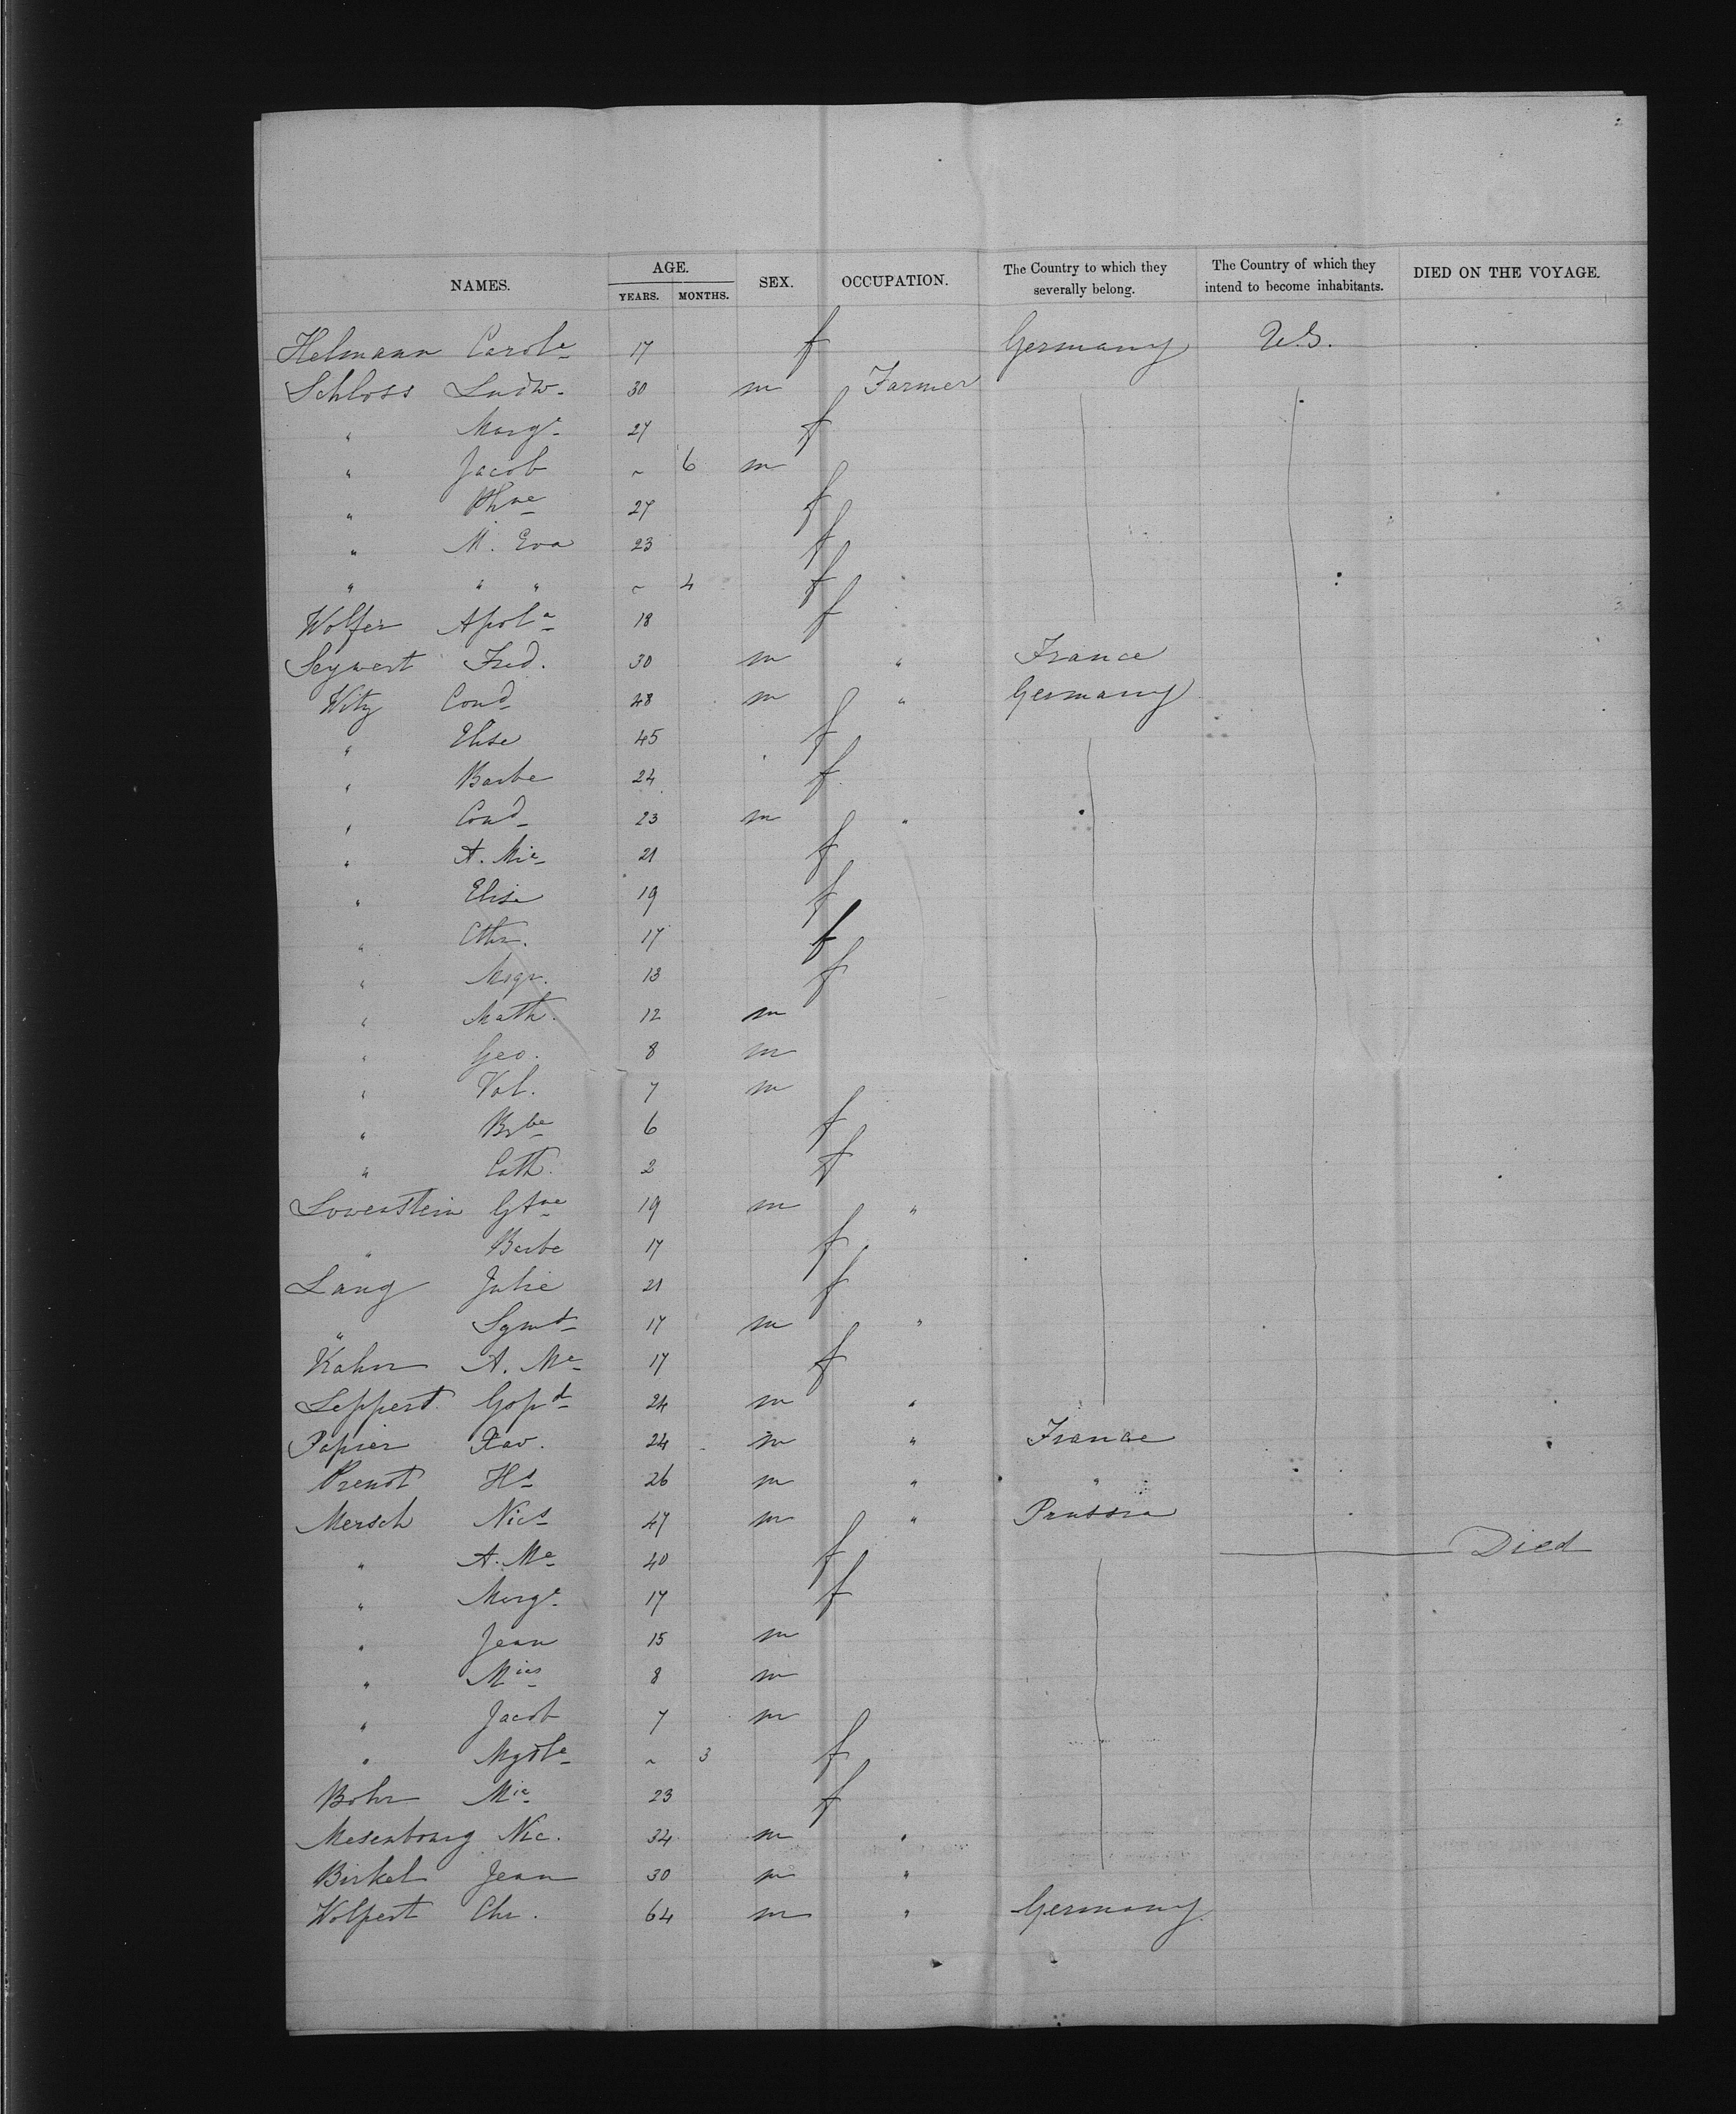 NAMES. AGE. SEX. OCCUPATION. The Country to which they severally belong. The Country of which they intend to become inhabitants. DIED ON THE VOYAGE.
YEARS. MONTHS.
Helmann Carole 17 f Germany U.S.
Schloss Ludw. 30 m Farmer
" Marge 27 f
" Jacob ~ 6 m
" 27 f
" M. Eva 23 f
" " " ~ 4 f
Wolfer Apola 18 f
Seywert Fred. 30 m " France
Witz Cond 48 m " Germany
" Elise 45 f
" Barbe 24 f
" Cond 23 m "
" A. Mie 21 f
" Elise 19 f
" Cthr. 17 f
" Mrgr. 13 f
" Math. 12 m
" Geo. 8 m
" Val. 7 m
" Brbe 6 f
" Cath. 2 f
Lowenstein Gtve 19 m "
" Barbe 17 f
Lang Julie 21 f
" Sgmd 17 m "
Kahn A. Me 17 f
Leppert Gopd 24 m "
Papier Xav. 24 m " France
Prenot Hs 26 m " "
Mersch Nics 47 m " Prussia
" A. Me 40 f Died
" Marge 17 f
" Jean 15 m
" 8 m
" Jacob 7 m
" Mgdle ~ 3 f
Bohr Mie 23 f
Mesenbourg Nic. 34 m "
Birkel Jean 30 m "
Wolpert Chr. 64 m " Germany